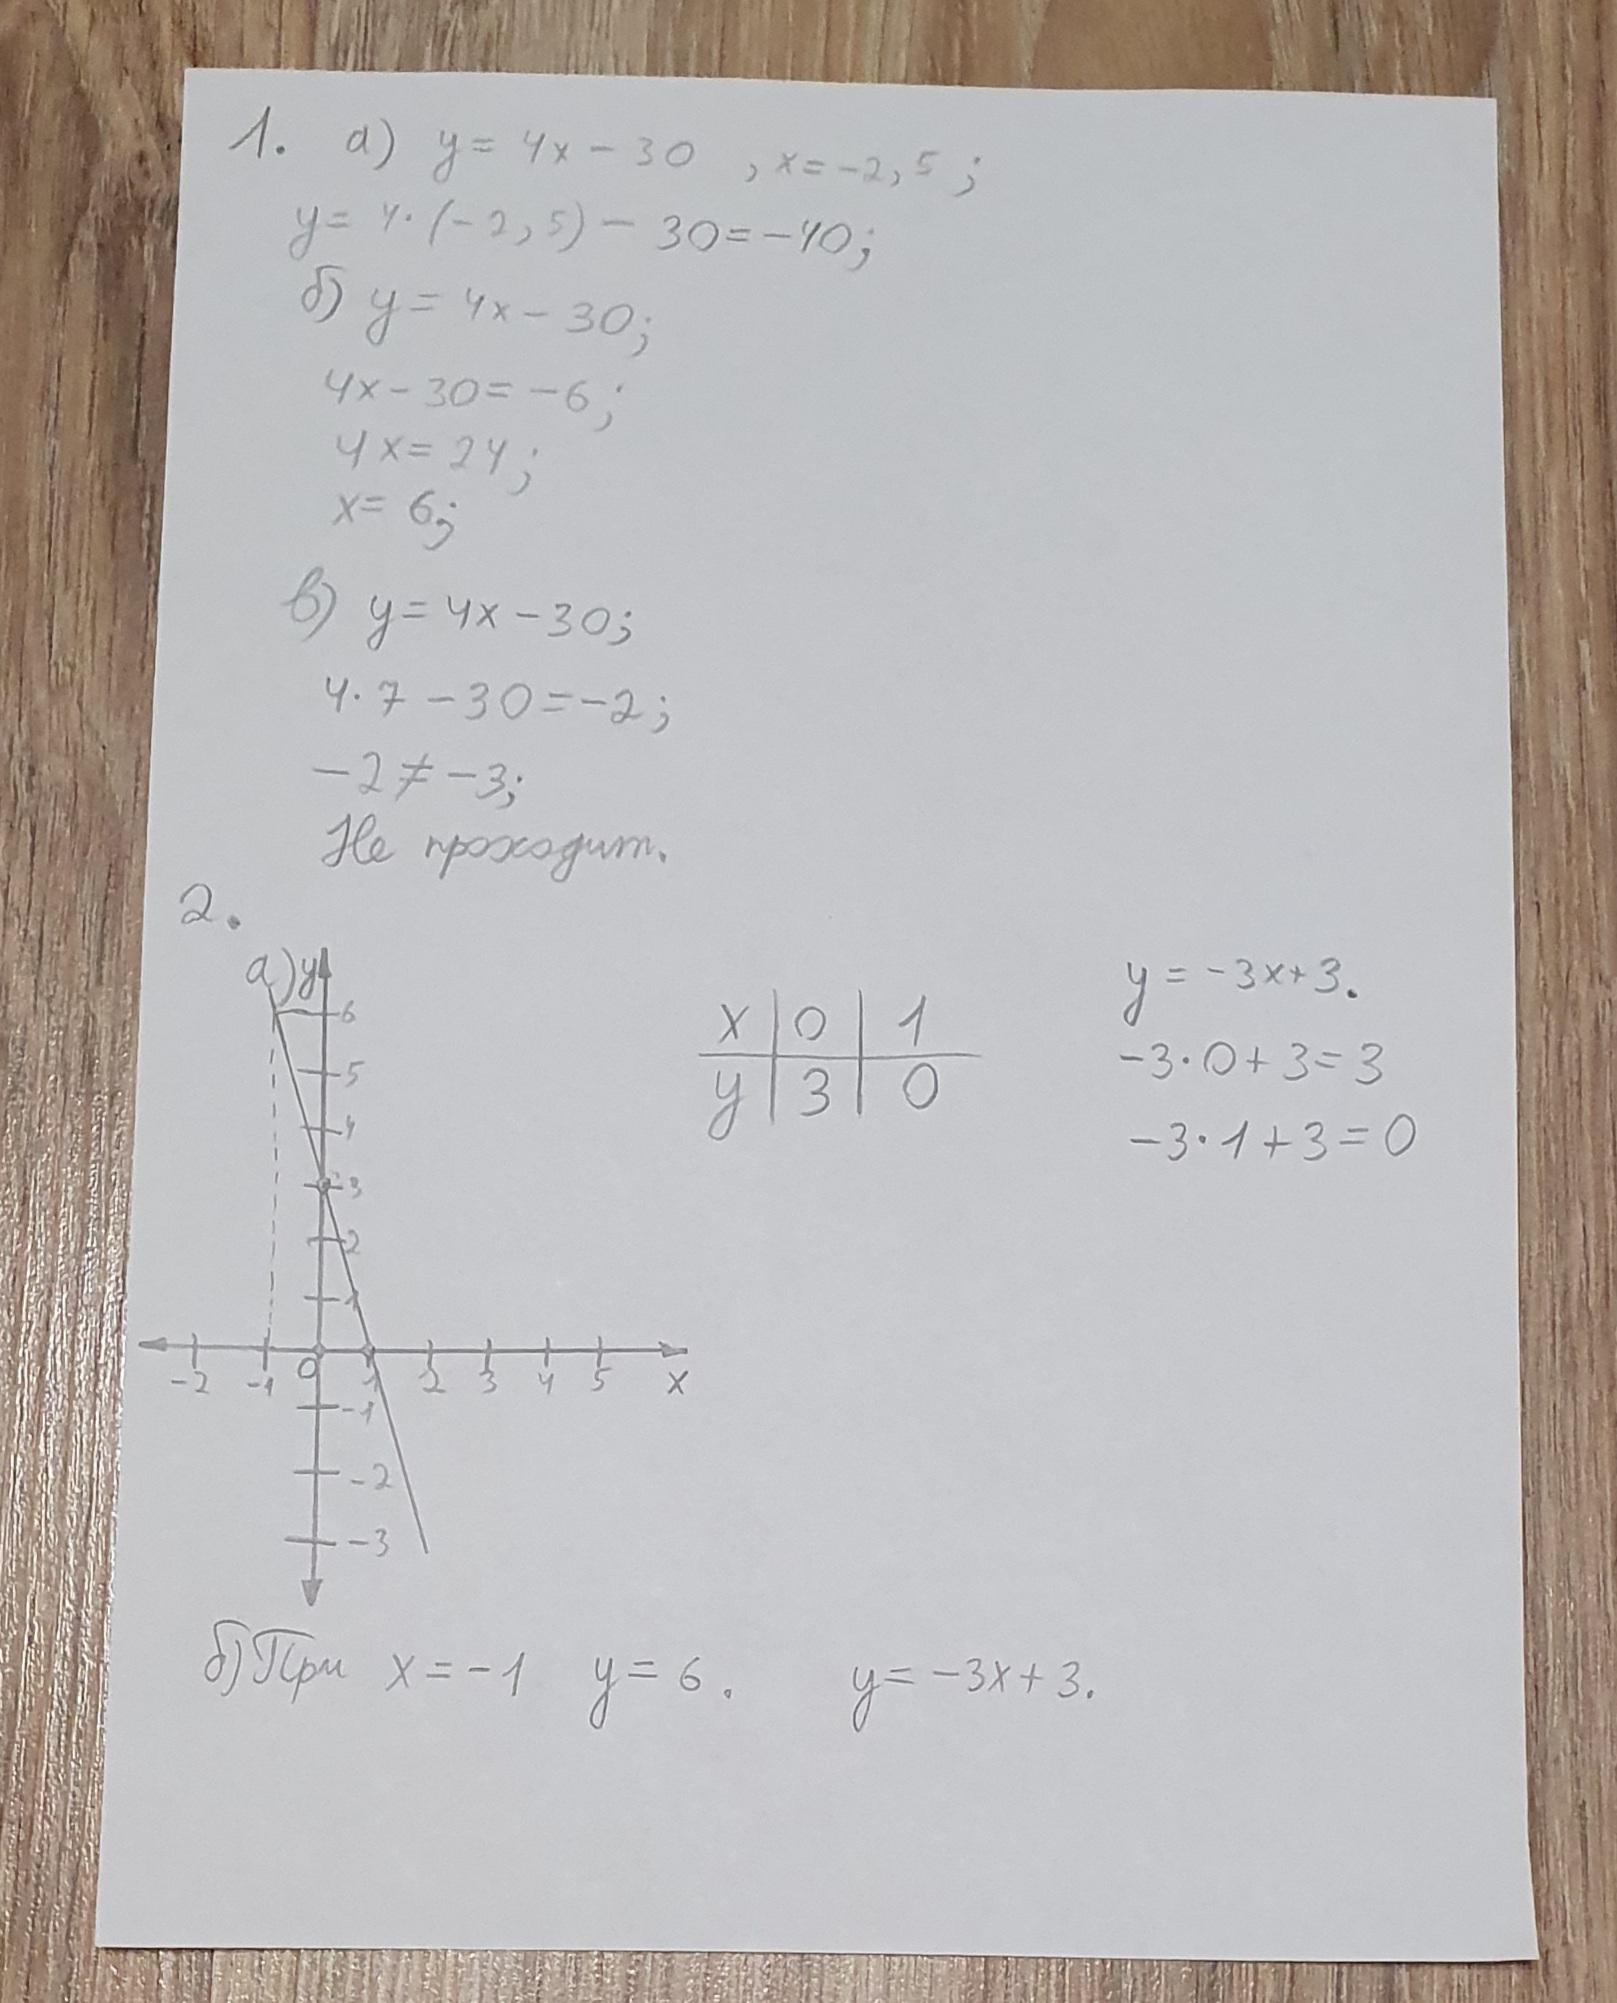 1. а) y = 4x - 30 , x = -2,5 ;
y = 4·(-2,5) - 30 = -40;
б) y = 4x - 30;
4x - 30 = -6;
4x = 24;
x = 6;
в) y = 4x - 30;
4·7 - 30 = -2;
-2 ≠ -3;
Не проходит.
2.
а) y
6
5
4
3
2
1
-2 -1 0 1 2 3 4 5 x
-1
-2
-3
x | 0 | 1
y | 3 | 0
y = -3x + 3.
-3·0 + 3 = 3
-3·1 + 3 = 0
б) При x = -1 y = 6. y = -3x + 3.